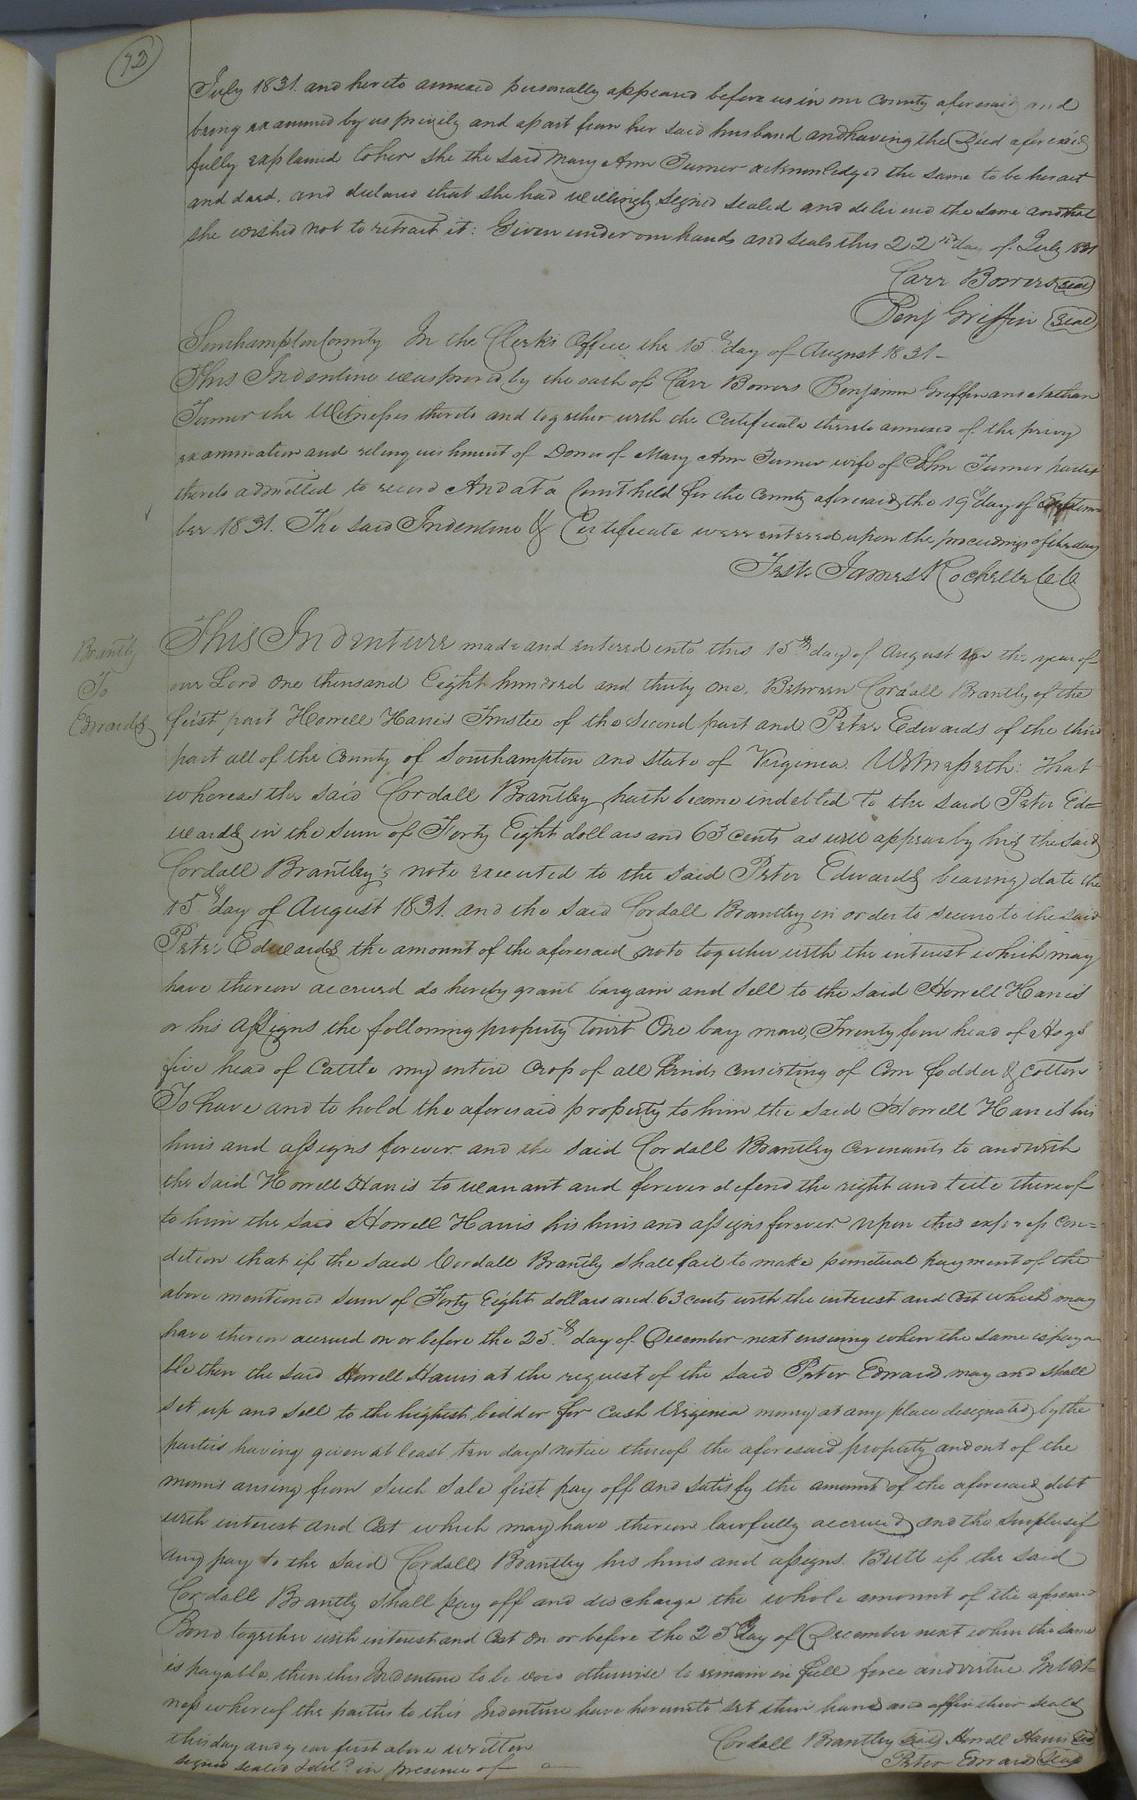 73
July 1831. and hereto annexed personally appeared before us in our County aforesaid and
being examined by us privily and apart from her said husband and having the Deed aforesaid
fully explained to her she the said Mary Ann Turner acknowledged the same to be her act
and deed. and declared that she had willingly signed sealed and delivered the same and that
she wished not to retract it: Given under our hands and seals this 22nd day of July 1831
Carr Bowers (seal)
Benj Griffin (Seal)
Southampton County In the Clerk's Office the 15th day of August 1831-
This Indenture was proved by the oath of Carr Bowers Benjamin Griffin and Nathan
Turner the Witnesses thereto and together with the Certificate thereto annexed of the privy
examination and relinquishment of Dower of Mary Ann Turner wife of John Turner
thereto admitted to record And at a Court held for the County aforesaid the 19th day of Septem
ber 1831. The said Indenture & Certificate were entered upon the proceedings of the day
Teste James Rochelle C.C
Brantly
To
Edwards
This Indenture made and entered into this 15th day of August in the year of
our Lord one thousand Eight hundred and thirty one. Between Cordall Brantly of the
first part Howell Harris Trustee of the second part and Peter Edwards of the third
part all of the County of Southampton and State of Virginia. Witnesseth: That
whereas the said Cordall Brantley hath become indebted to the said Peter Ed=
wards in the sum of Forty Eight dollars and 63 cents as will appear by his the said
Cordall Brantley's note executed to the said Peter Edwards bearing date the
15th day of August 1831. and the said Cordall Brantley in order to secure to the said
Peter Edwards the amount of the aforesaid note together with the interest which may
have thereon accrued do hereby grant bargain and sell to the said Howell Harris
or his assigns the following property towit One bay mare, Twenty four head of Hogs
five head of Cattle my entire crop of all kinds consisting of Corn fodder & cotton
To have and to hold the aforesaid property to him the said Howell Harris his
heirs and assigns forever. and the said Cordall Brantley covenants to and with
the said Howell Harris to warrant and forever defend the right and title thereof
to him the said Howell Harris his heirs and assigns forever. upon this express con=
dition that if the said Cordall Brantly shall fail to make punctual payment of the
above mentioned sum of Forty Eight dollars and 63 cents with the interest and cost which may
have thereon accrued on or before the 25th day of December next ensuing when the same is paya
ble then the said Howell Harris at the request of the said Peter Edward may and shall
set up and sell to the highest bidder for cash Virginia money at any place designated by the
parties having given at least ten days notice thereof the aforesaid property and out of the
monies arising from such sale first pay off and satisfy the amount of the aforesaid debt
with interest and Cost which may have thereon lawfully accrued and the surplus if
any pay to the said Cordall Brantley his heirs and assigns. Butt if the said
Cordall Brantly shall pay off and discharge the whole amount of the aforesaid
Bond together with interest and Cost on or before the 25th day of December next when the same
is payable then this Indenture to be void otherwise to remain in full force and virtue. In Wit-
ness whereof the parties to this Indenture have hereunto set their hands and affix their seals
this day and year first above written
Cordall Brantley (seal) Howell Harris (seal)
signed sealed & deld in presence of
Peter Edwards (seal)